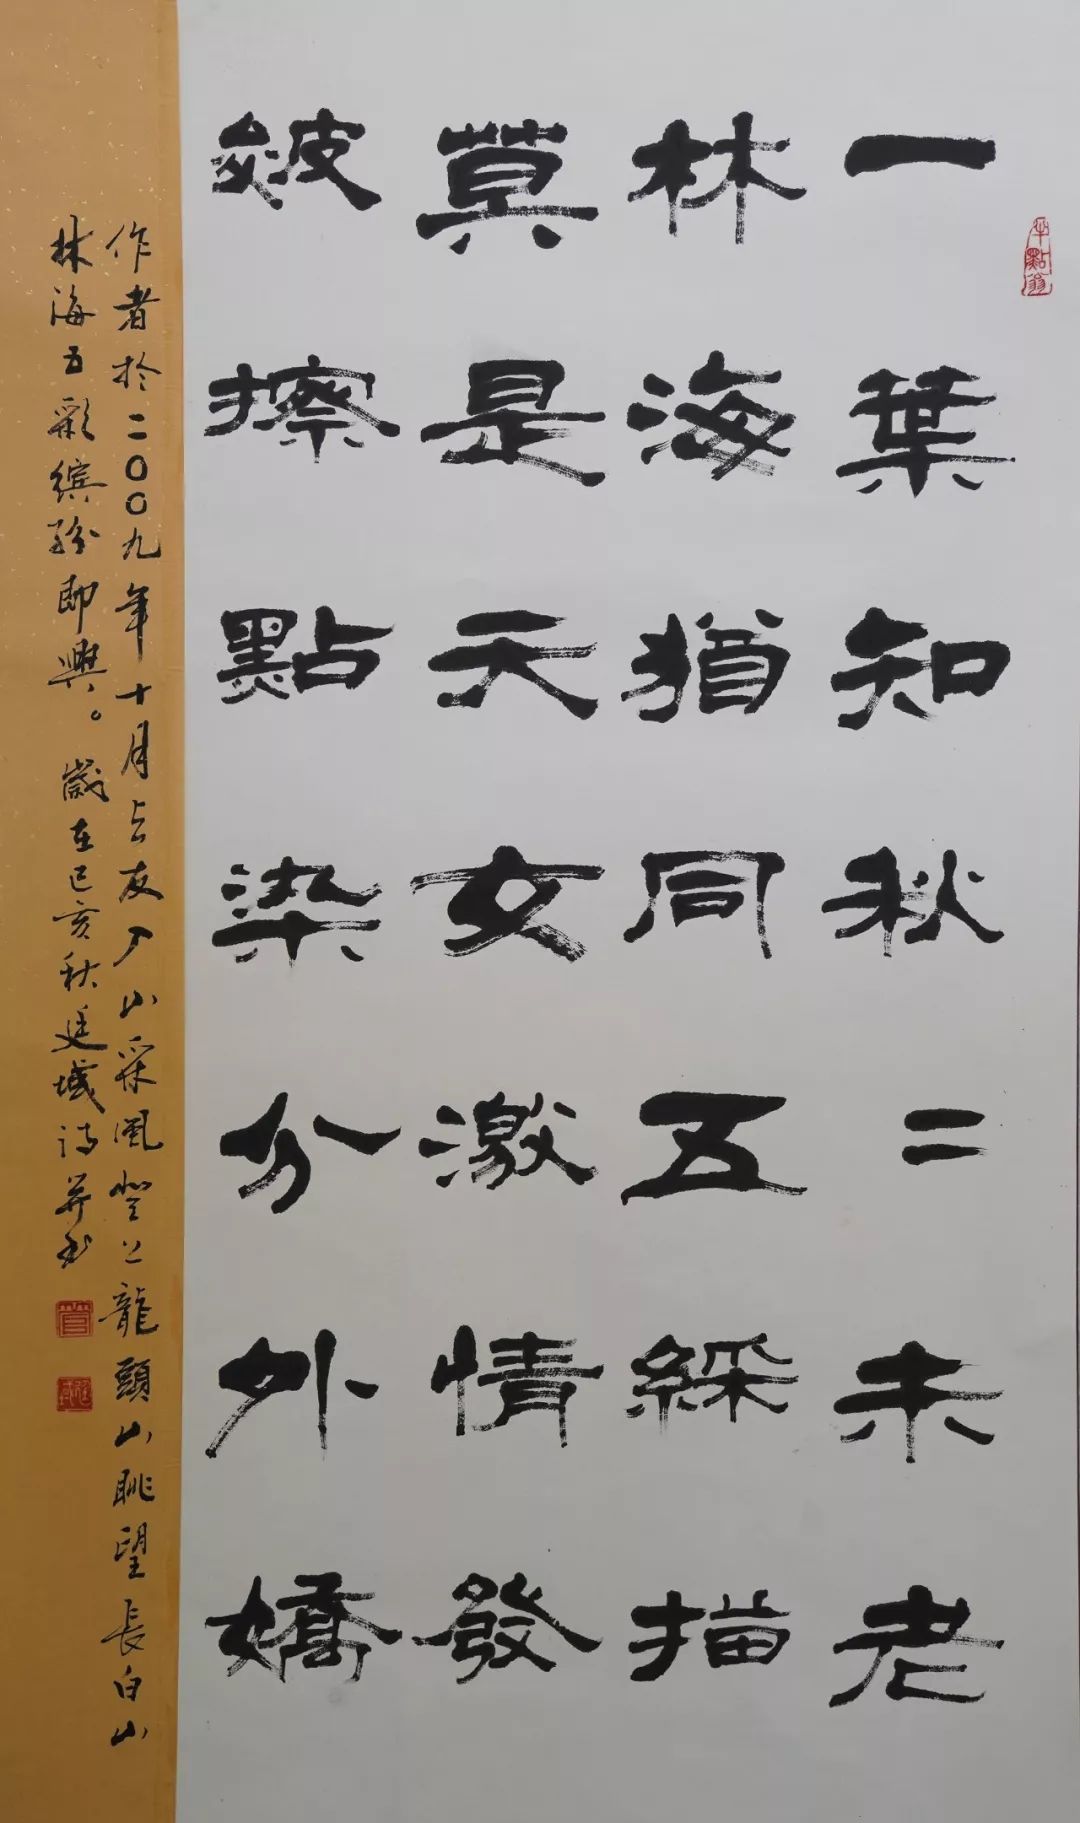 一葉知秋二未老
林海猶同五綵描
莫是天女激情發
皴擦點染分外嬌
作者於二00九年十月与友入山采風登上龍頭山眺望長白山
林海五彩缤紛即興。歲在己亥秋廷域詩并书